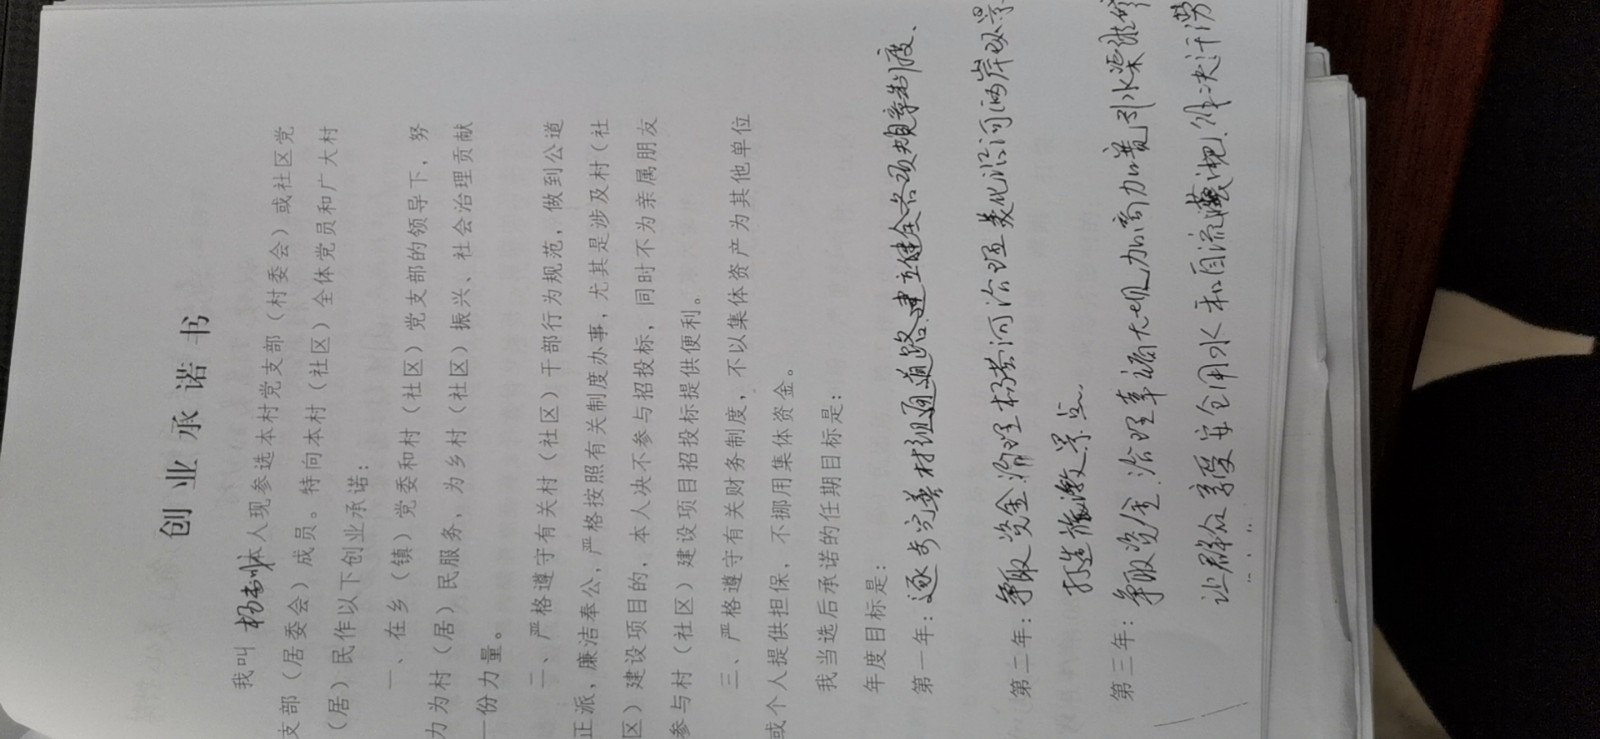 创业承诺书
我叫 杨 本人现参选本村党支部（村委会）或社区党
支部（居委会）成员。特向本村（社区）全体党员和广大村
（居）民作以下创业承诺：
一、在乡（镇）党委和村（社区）党支部的领导下，努
力为村（居）民服务，为乡村（社区）振兴、社会治理贡献
一份力量。
二、严格遵守有关村（社区）干部行为规范，做到公道
正派，廉洁奉公，严格按照有关制度办事，尤其是涉及村（社
区）建设项目的，本人决不参与招投标，同时不为亲属朋友
参与村（社区）建设项目招投标提供便利。
三、严格遵守有关财务制度，不以集体资产为其他单位
或个人提供担保，不挪用集体资金。
我当选后承诺的任期目标是：
年度目标是：
第一年：逐步完善村组通道路建立健全各项规章制度、
第二年：争取资金治理杨芳河治理美化沿河两岸以景
打造旅游景点
第三年：争取资金治理 加高加 引水渠
让群众享受安全用水和自流灌溉解决干涝